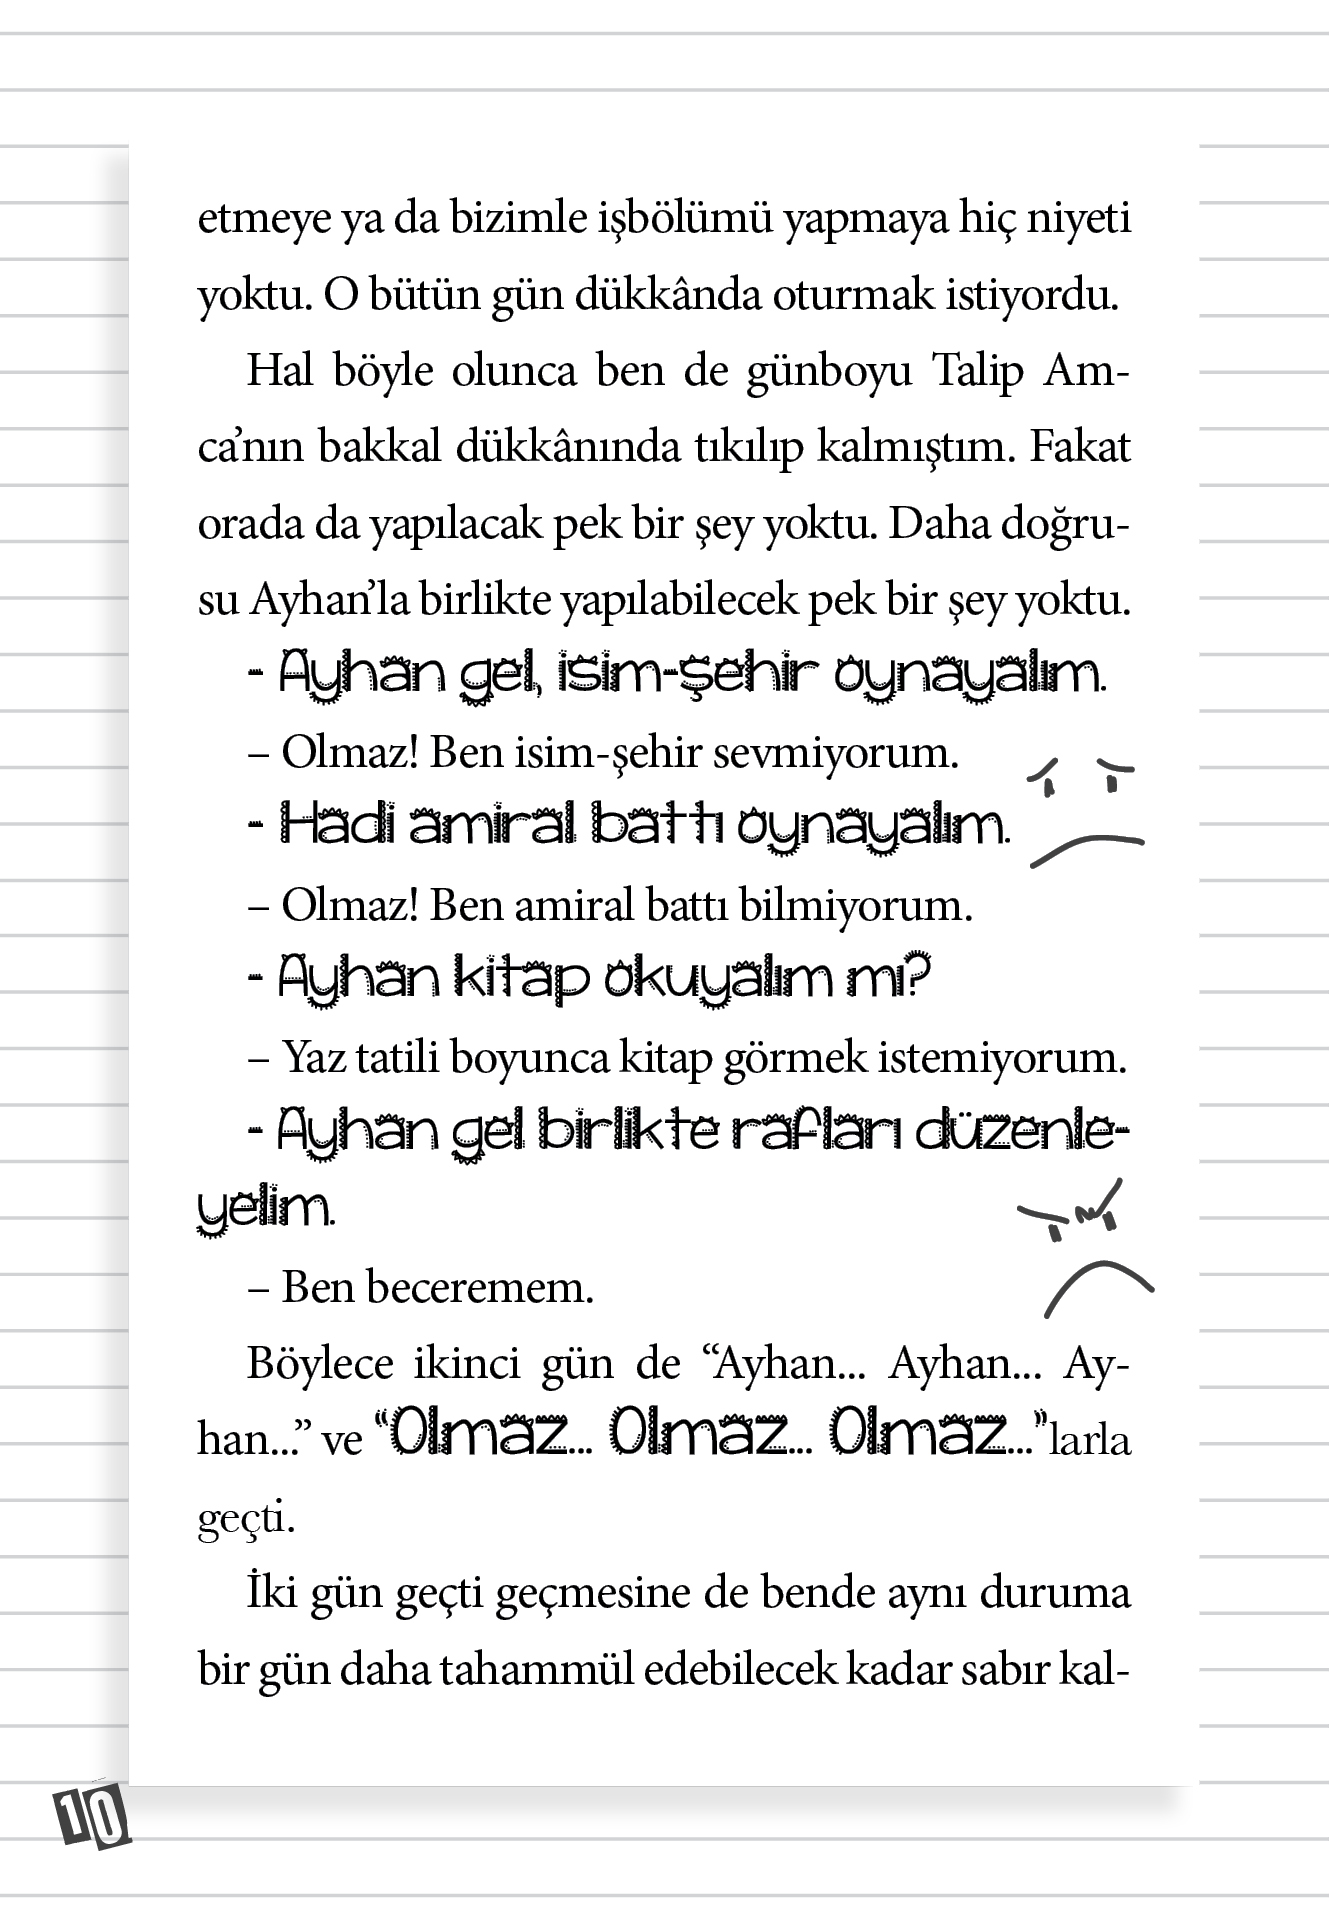 etmeye ya da bizimle işbölümü yapmaya hiç niyeti
yoktu. O bütün gün dükkânda oturmak istiyordu.
Hal böyle olunca ben de günboyu Talip Am-
ca’nın bakkal dükkânında tıkılıp kalmıştım. Fakat
orada da yapılacak pek bir şey yoktu. Daha doğru-
su Ayhan’la birlikte yapılabilecek pek bir şey yoktu.
- Ayhan gel, isim-şehir oynayalım.
– Olmaz! Ben isim-şehir sevmiyorum.
- Hadi amiral battı oynayalım.
– Olmaz! Ben amiral battı bilmiyorum.
- Ayhan kitap okuyalım mı?
– Yaz tatili boyunca kitap görmek istemiyorum.
- Ayhan gel birlikte rafları düzenle-
yelim.
– Ben beceremem.
Böylece ikinci gün de “Ayhan... Ayhan... Ay-
han...” ve “Olmaz... Olmaz... Olmaz...”larla
geçti.
İki gün geçti geçmesine de bende aynı duruma
bir gün daha tahammül edebilecek kadar sabır kal-
10